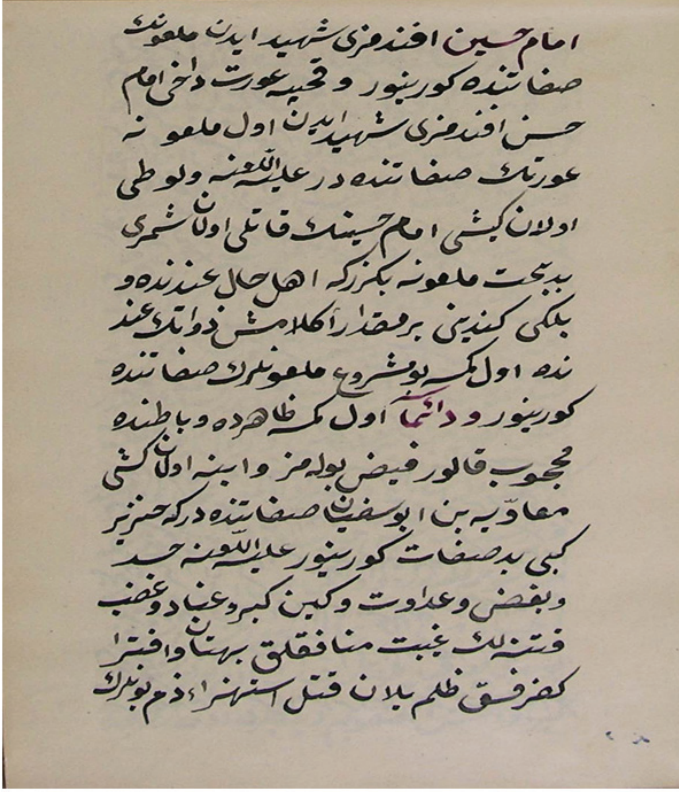 امام حسین افندمزی شهید ایدن ملعونك
صفاتنده کورینور و قحبه عورت داخی امام
حسن افندمزی شهید ایدن اول ملعونه
عورتك صفاتنده در علیه اللعنه ولوطی
اولان کیشی امام حسینك قاتلی اولان شمری
بدبخت ملعونه بکزرکه اهل حال عندنده و
بلکی کندینی بر مقدار اکلامش ذواتك عند
نده اول کمسه بو مشروع ملعونلرك صفاتنده
کورینور و دائما اول کمسه ظاهرده و باطنده
محجوب قالور فیض بوله مز و ابنه اولان کشی
معاویه بن ابو سفیان صفاتنده درکه خنزیر
کبی بد صفات کورینور علیه اللعنه حسد
و بغض و عداوت و کین کبر و عناد و غضب
فتنه لك غیبت منافقلق بهتان و افترا
کفر فسق ظلم یلان قتل استهزاء ذم بونلرك